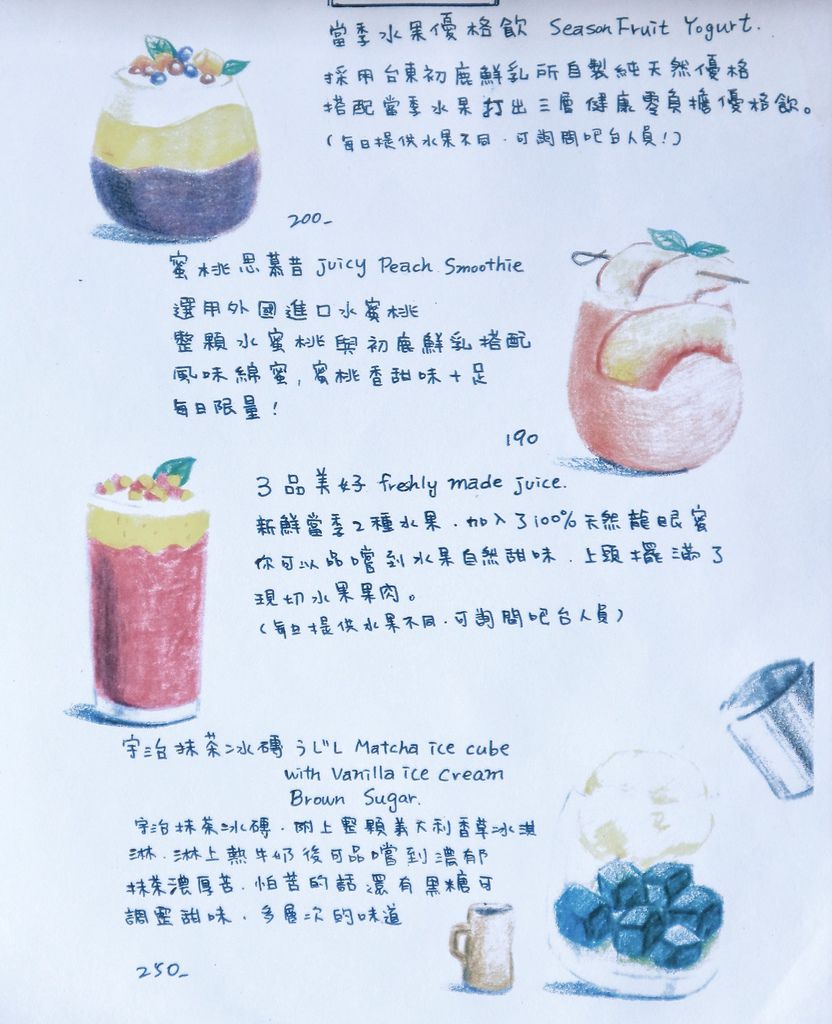 當季水果優格飲 Season Fruit Yogurt.
採用台東初鹿鮮乳所自製純天然優格
搭配當季水果打出三層健康零負擔優格飲。
(每日提供水果不同．可詢問吧台人員！)
200-
蜜桃思慕昔 Juicy Peach Smoothie
選用外國進口水蜜桃
整顆水蜜桃與初鹿鮮乳搭配
風味綿蜜，蜜桃香甜味十足
每日限量！
190
3品美好 freshly made juice.
新鮮當季2種水果．加入了100%天然龍眼蜜
你可以品嚐到水果自然甜味．上頭擺滿了
現切水果果肉。
(每日提供水果不同．可詢問吧台人員)
宇治抹茶冰磚 うじし Matcha ice cube
with Vanilla ice Cream
Brown Sugar.
宇治抹茶冰磚．附上整顆義大利香草冰淇
淋．淋上熱牛奶後可品嚐到濃郁
抹茶濃厚苦．怕苦的話還有黑糖可
調整甜味．多層次的味道
250-